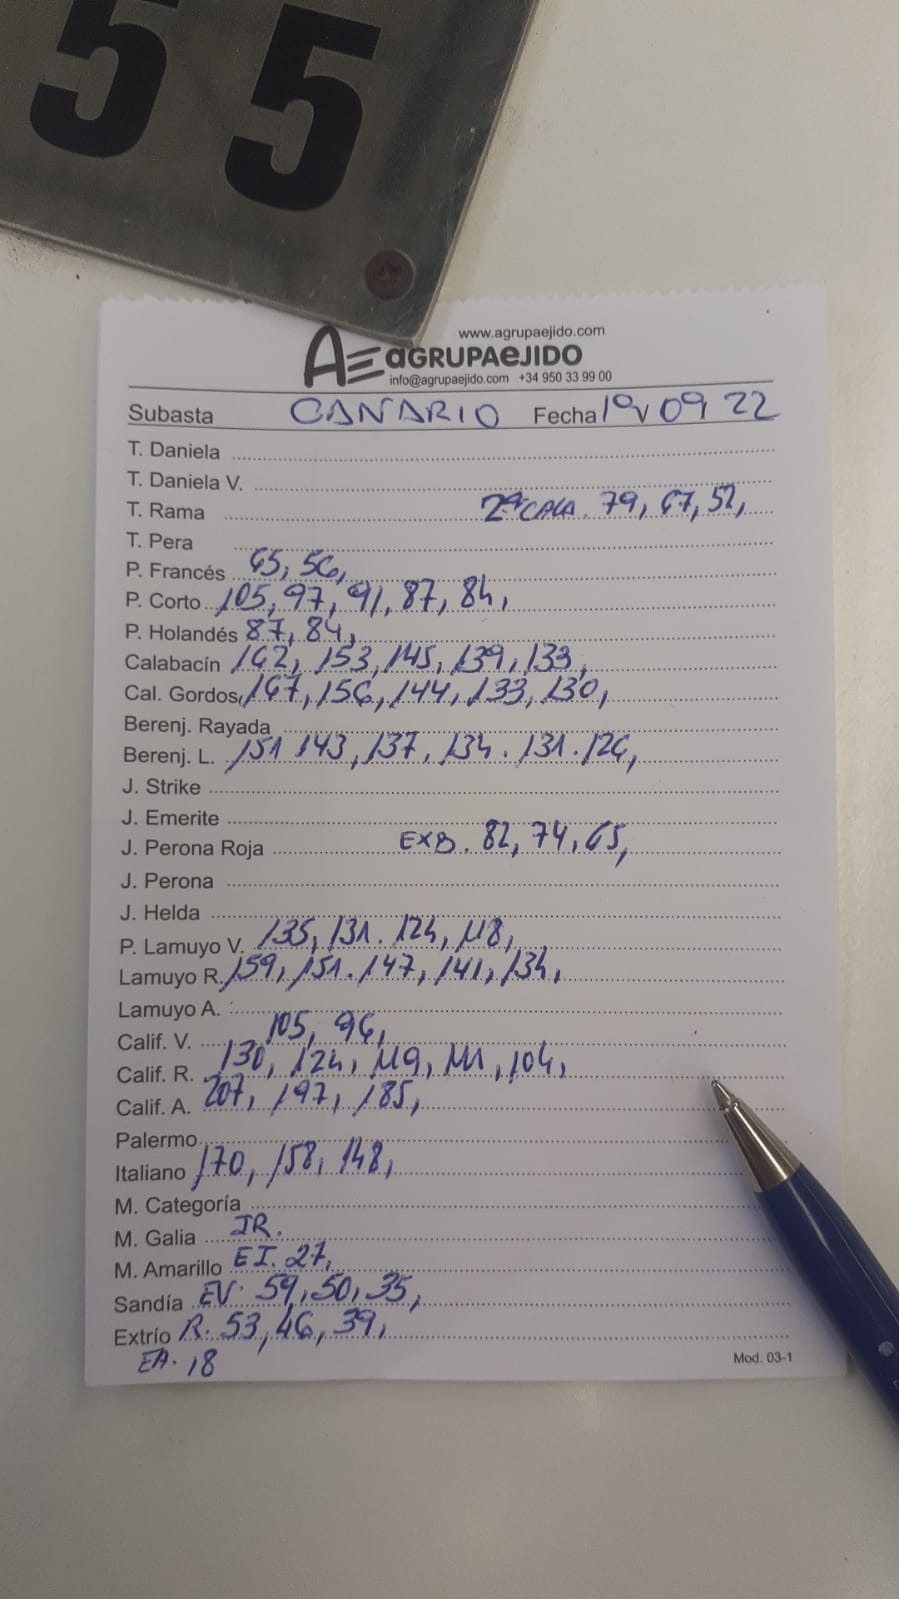 55
www.agrupaejido.com
AE aGRUPAeJIDO
info@agrupaejido.com +34 950 33 99 00
Subasta CANARIO Fecha 19/09 22
T. Daniela
T. Daniela V.
T. Rama 2ª CALA. 79, 67, 52,
T. Pera
P. Francés 65, 56,
P. Corto 105, 97, 91, 87, 84,
P. Holandés 87, 84,
Calabacín 162, 153, 145, 139, 133,
Cal. Gordos 167, 156, 144, 133, 130,
Berenj. Rayada
Berenj. L. 151 143, 137, 134. 131. 126,
J. Strike
J. Emerite
J. Perona Roja EXB. 82, 74, 65,
J. Perona
J. Helda
P. Lamuyo V. 135, 131. 124, 118,
Lamuyo R. 159, 151. 147, 141, 134,
Lamuyo A.
Calif. V. 105, 96,
Calif. R. 130, 124, 119, 111, 104,
Calif. A. 207, 197, 185,
Palermo
Italiano 170, 158, 148,
M. Categoría
M. Galia JR.
M. Amarillo EI. 27,
Sandía EV. 59, 50, 35,
Extrío R. 53, 46, 39,
EA. 18
Mod. 03-1